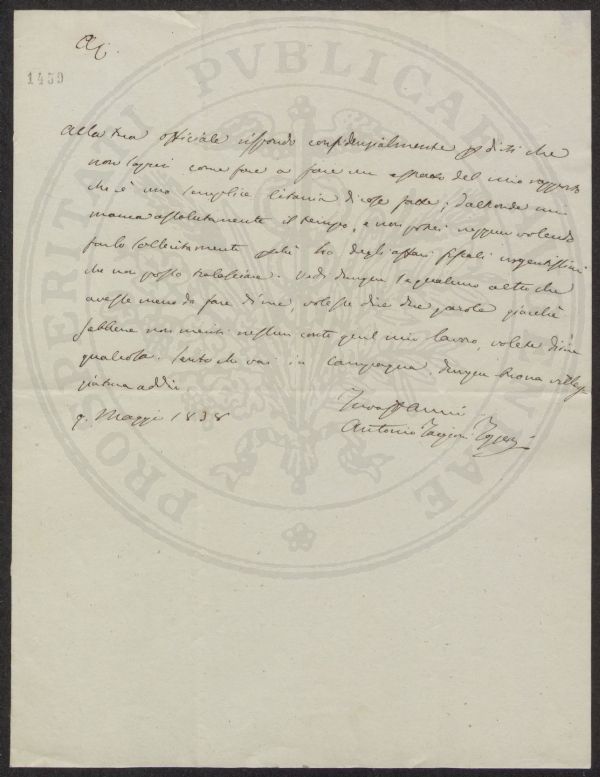 CAj.
1459
Alla tua officiale rispondo confidenzialmente p dirti che
non saprei come fare a fare un estratto del mio rapporto
che è una semplice litania di cose fatte; d'altronde mi
manca assolutamente il tempo, e non potrei neppur volendo
farlo sollecitamente perchè ho degli affari fiscali urgentissimi
che non posso tralasciare. Vedi dunque se qualcun altro che
avesse meno da fare di me, volesse dire due parole giacchè
sebbene non meriti nessun conto quel mio lavoro, volete dirne
qualcosa. Sento che vai in campagna, dunque buona villeg
giatura addio
9. Maggio 1838
Antonio Targioni Tozzetti
PROSPERITATI PVBLICAE